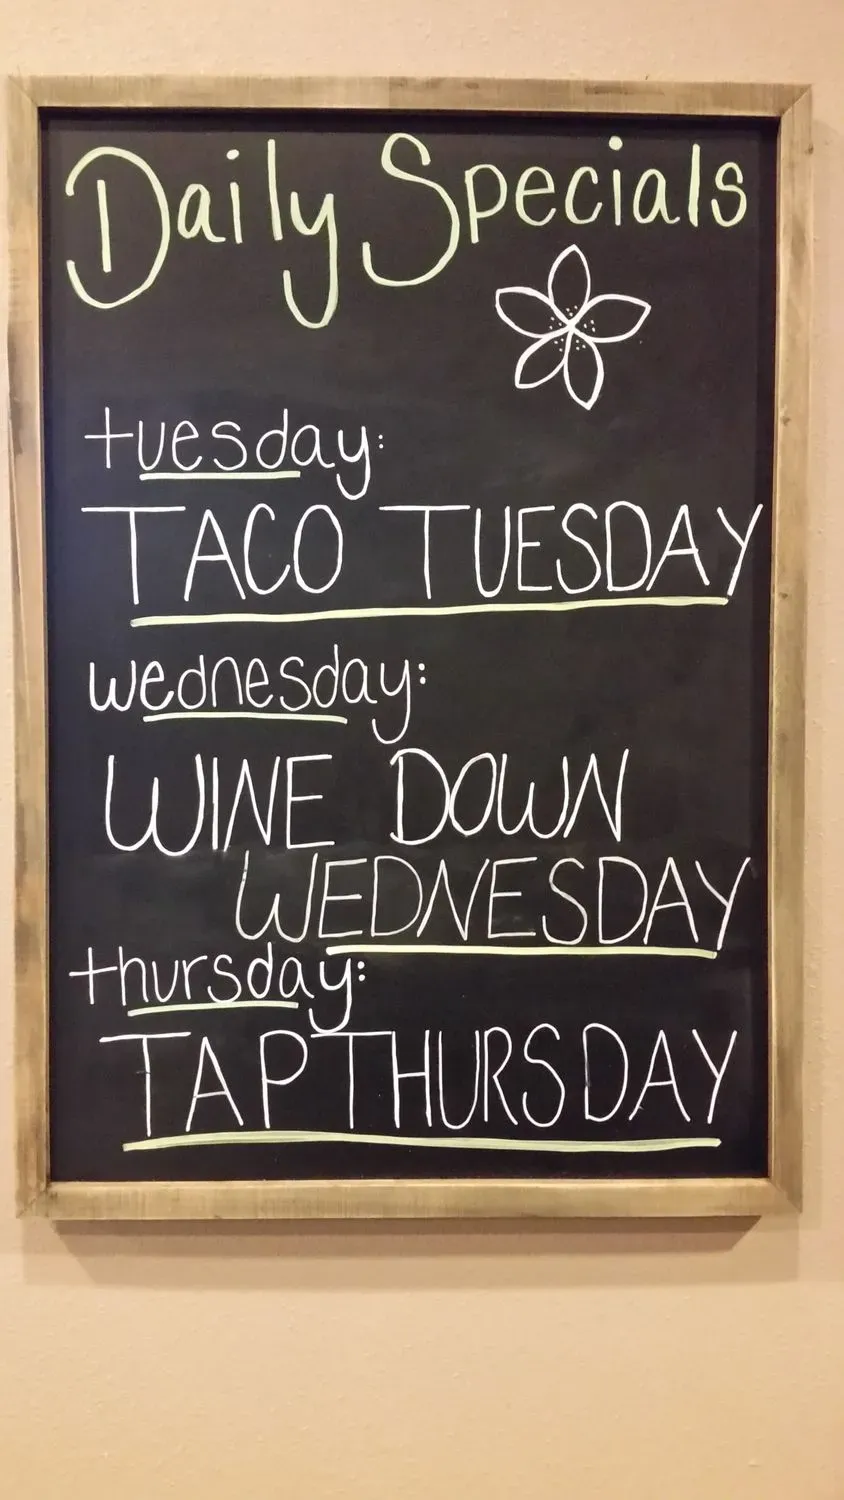 Daily Specials
tuesday:
TACO TUESDAY
wednesday:
WINE DOWN
WEDNESDAY
thursday:
TAP THURSDAY